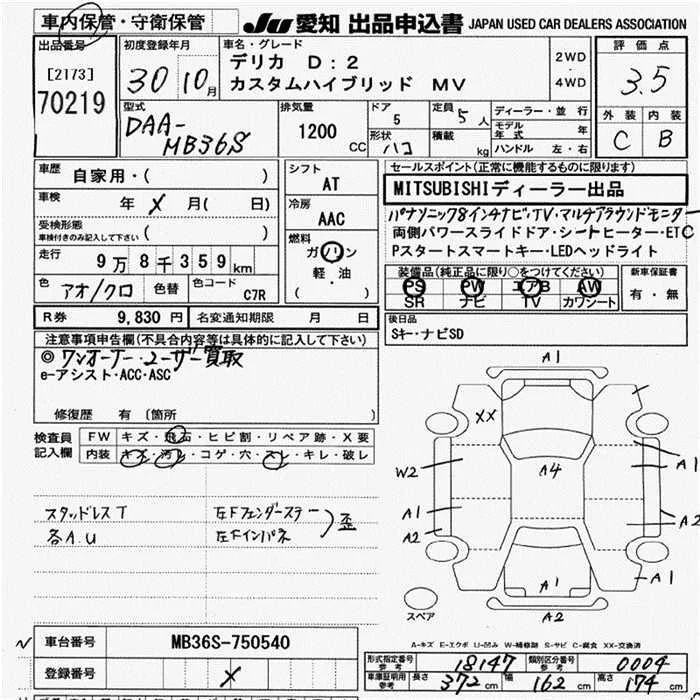 車内保管・守衛保管 JU 愛知 出品申込書 JAPAN USED CAR DEALERS ASSOCIATION
出品番号 [2173] 70219
初度登録年月 30 10月
車名・グレード デリカ D:2 カスタムハイブリッド MV
2WD ・ 4WD
評価点 3.5
外装 内装
C B
型式 DAA-MB36S
排気量 1200 CC
ドア 5
形状 ハコ
定員 5 人
積載 kg
ディーラー・並行
モデル年式 年
ハンドル 左・右
車歴 自家用・( )
車検 年 × 月( 日)
受検形態
車検付きのみ記入して下さい ( )
走行 9万8千359km
色 アオ/クロ 色替 色コード C7R
シフト AT
冷房 AAC
燃料 ガソリン
軽・油
( )
セールスポイント(正常に機能するものに限ります)
MITSUBISHIディーラー出品
パナソニック8インチナビ・TV・マルチアラウンドモニター
両側パワースライドドア・シートヒーター・ETC
Pスタートスマートキー・LEDヘッドライト
装備品(純正品に限り○をつけてください)
PS PW エアB AW
SR ナビ TV カワシート
新車保証書
有・無
R券 9,830 円 名変通知期限 月 日
後日品
Sキー・ナビSD
注意事項申告欄(不具合内容等は具体的に記入して下さい)
◎ワンオーナー・ユーザー買取
e-アシスト・ACC・ASC
修復歴 有 〔箇所 〕
検査員記入欄
FW キズ・飛石・ヒビ割・リペア跡・X要
内装 キズ・汚レ・コゲ・穴・スレ・キレ・破レ
スタッドレスT
各A.U
左Fフェンダーステー
左Fインパネ
歪
A1
XX
W2
A4
A1
A1
A2
A2
A1
A1
A2
スペア
A-キズ E-エクボ U-凹み W-補修跡 S-サビ C-腐食 XX-交換済
車台番号 MB36S-750540
登録番号 ×
形式指定番号 参考 18147
類別区分番号 参考 0004
車庫証明用 参考 長さ 372cm 幅 162cm 高さ 174cm